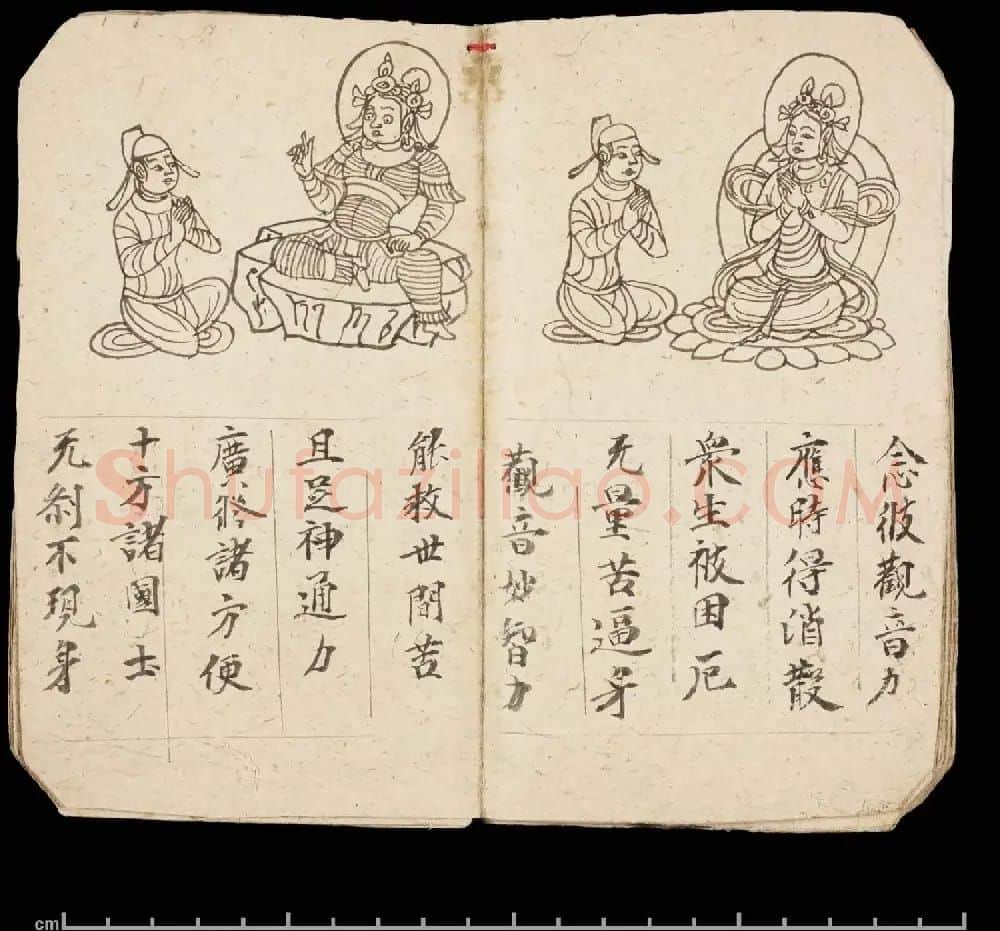 念彼觀音力
應時得消散
衆生被困厄
无量苦逼身
觀音妙智力
能救世間苦
且足神通力
廣修諸方便
十方諸國土
无刹不現身
Shufaziliao.com
cm